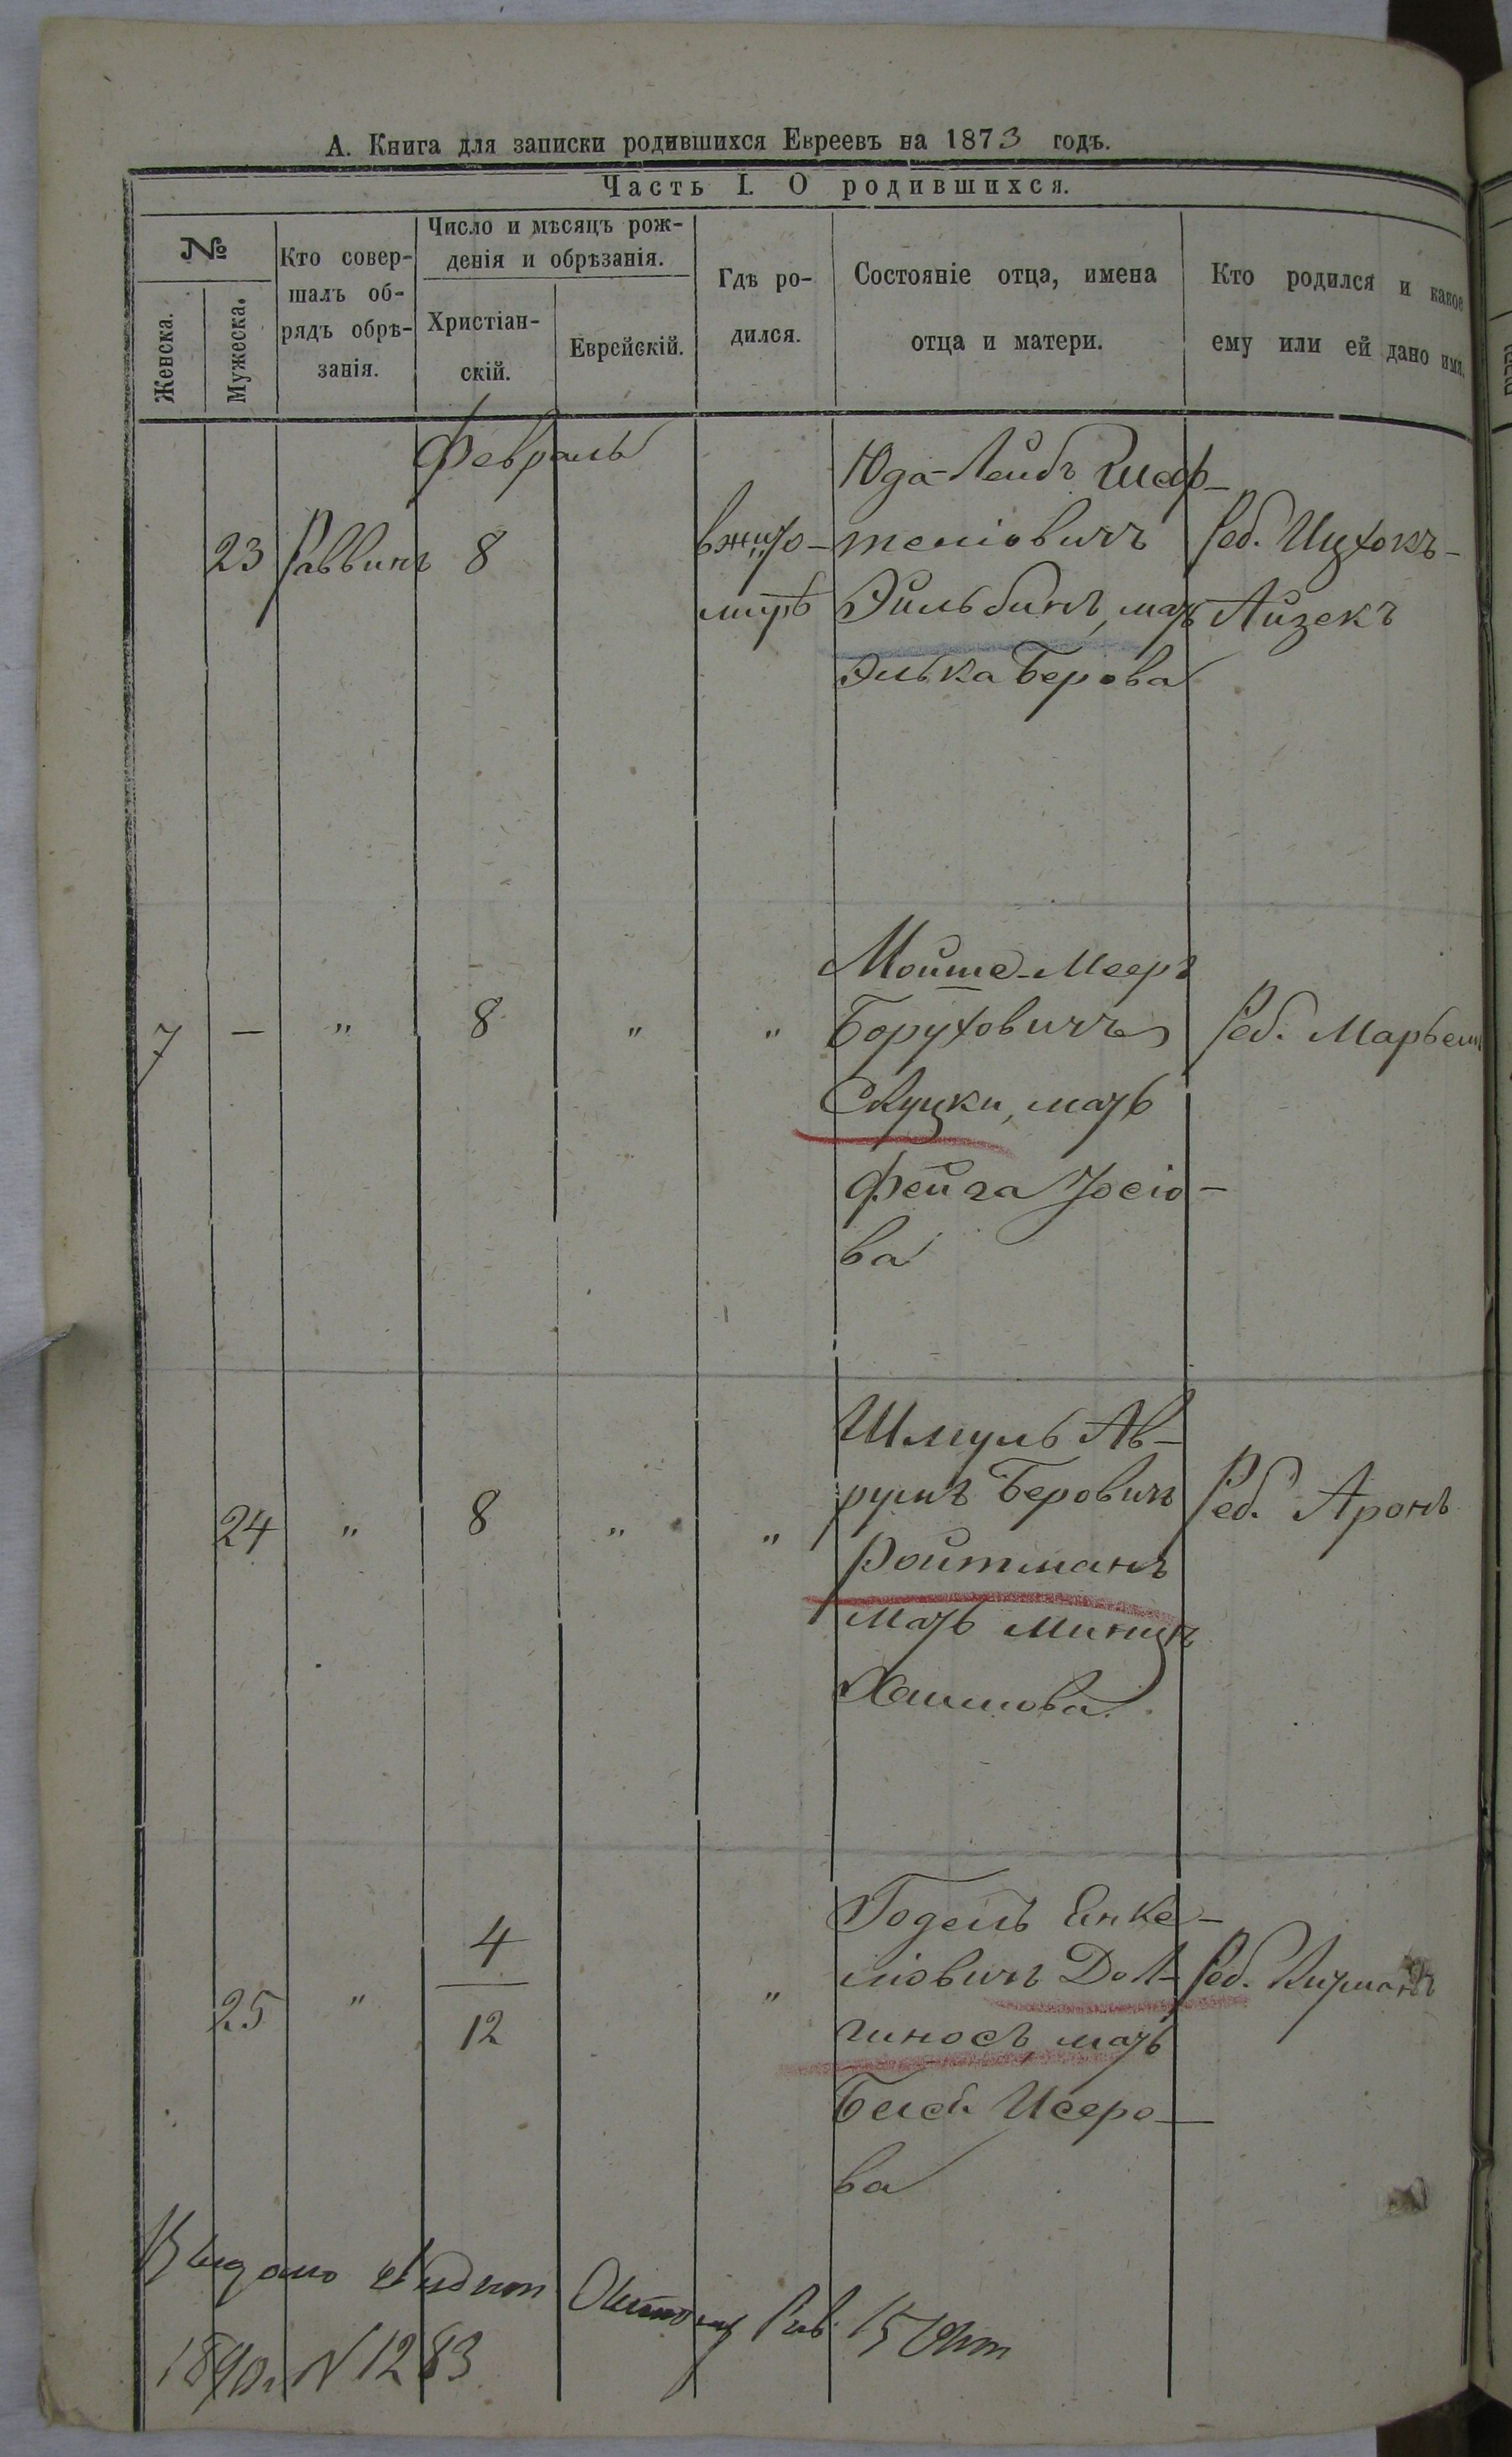 А. Книга для записки родившихся Евреевъ на 1873 годъ.
Часть I. О родившихся.
№
Женска.
Мужеска.
Кто совер-
шалъ об-
рядъ обрѣ-
занія.
Число и мѣсяцъ рож-
денія и обрѣзанія.
Христіан-
скій.
Еврейскій.
Гдѣ ро-
дился.
Состояніе отца, имена
отца и матери.
Кто родился и какое
ему или ей дано имя.
Февраль
23 Раввинъ 8
в жито-
мирѣ
Юда-Лейбъ Шеф-
теліовичъ
Эйльбинъ, мать
Элька Берова
Реб. Ицхокъ-
Айзекъ
7 — " 8 " "
Мойше-Мееръ
Боруховичъ
Слуцки, мать
Фейга Іосіо-
ва
Реб. Марьем
24 " 8 " "
Шмуль Ав-
румъ Беровичъ
Ройтманъ
мать
Хаимова
Реб. Аронъ
25 " 4
12 "
Годель Енке-
ліовичъ Дол-
гиносъ, мать
Исеро-
ва
Реб.
Выдано
15
1890 г. № 1283